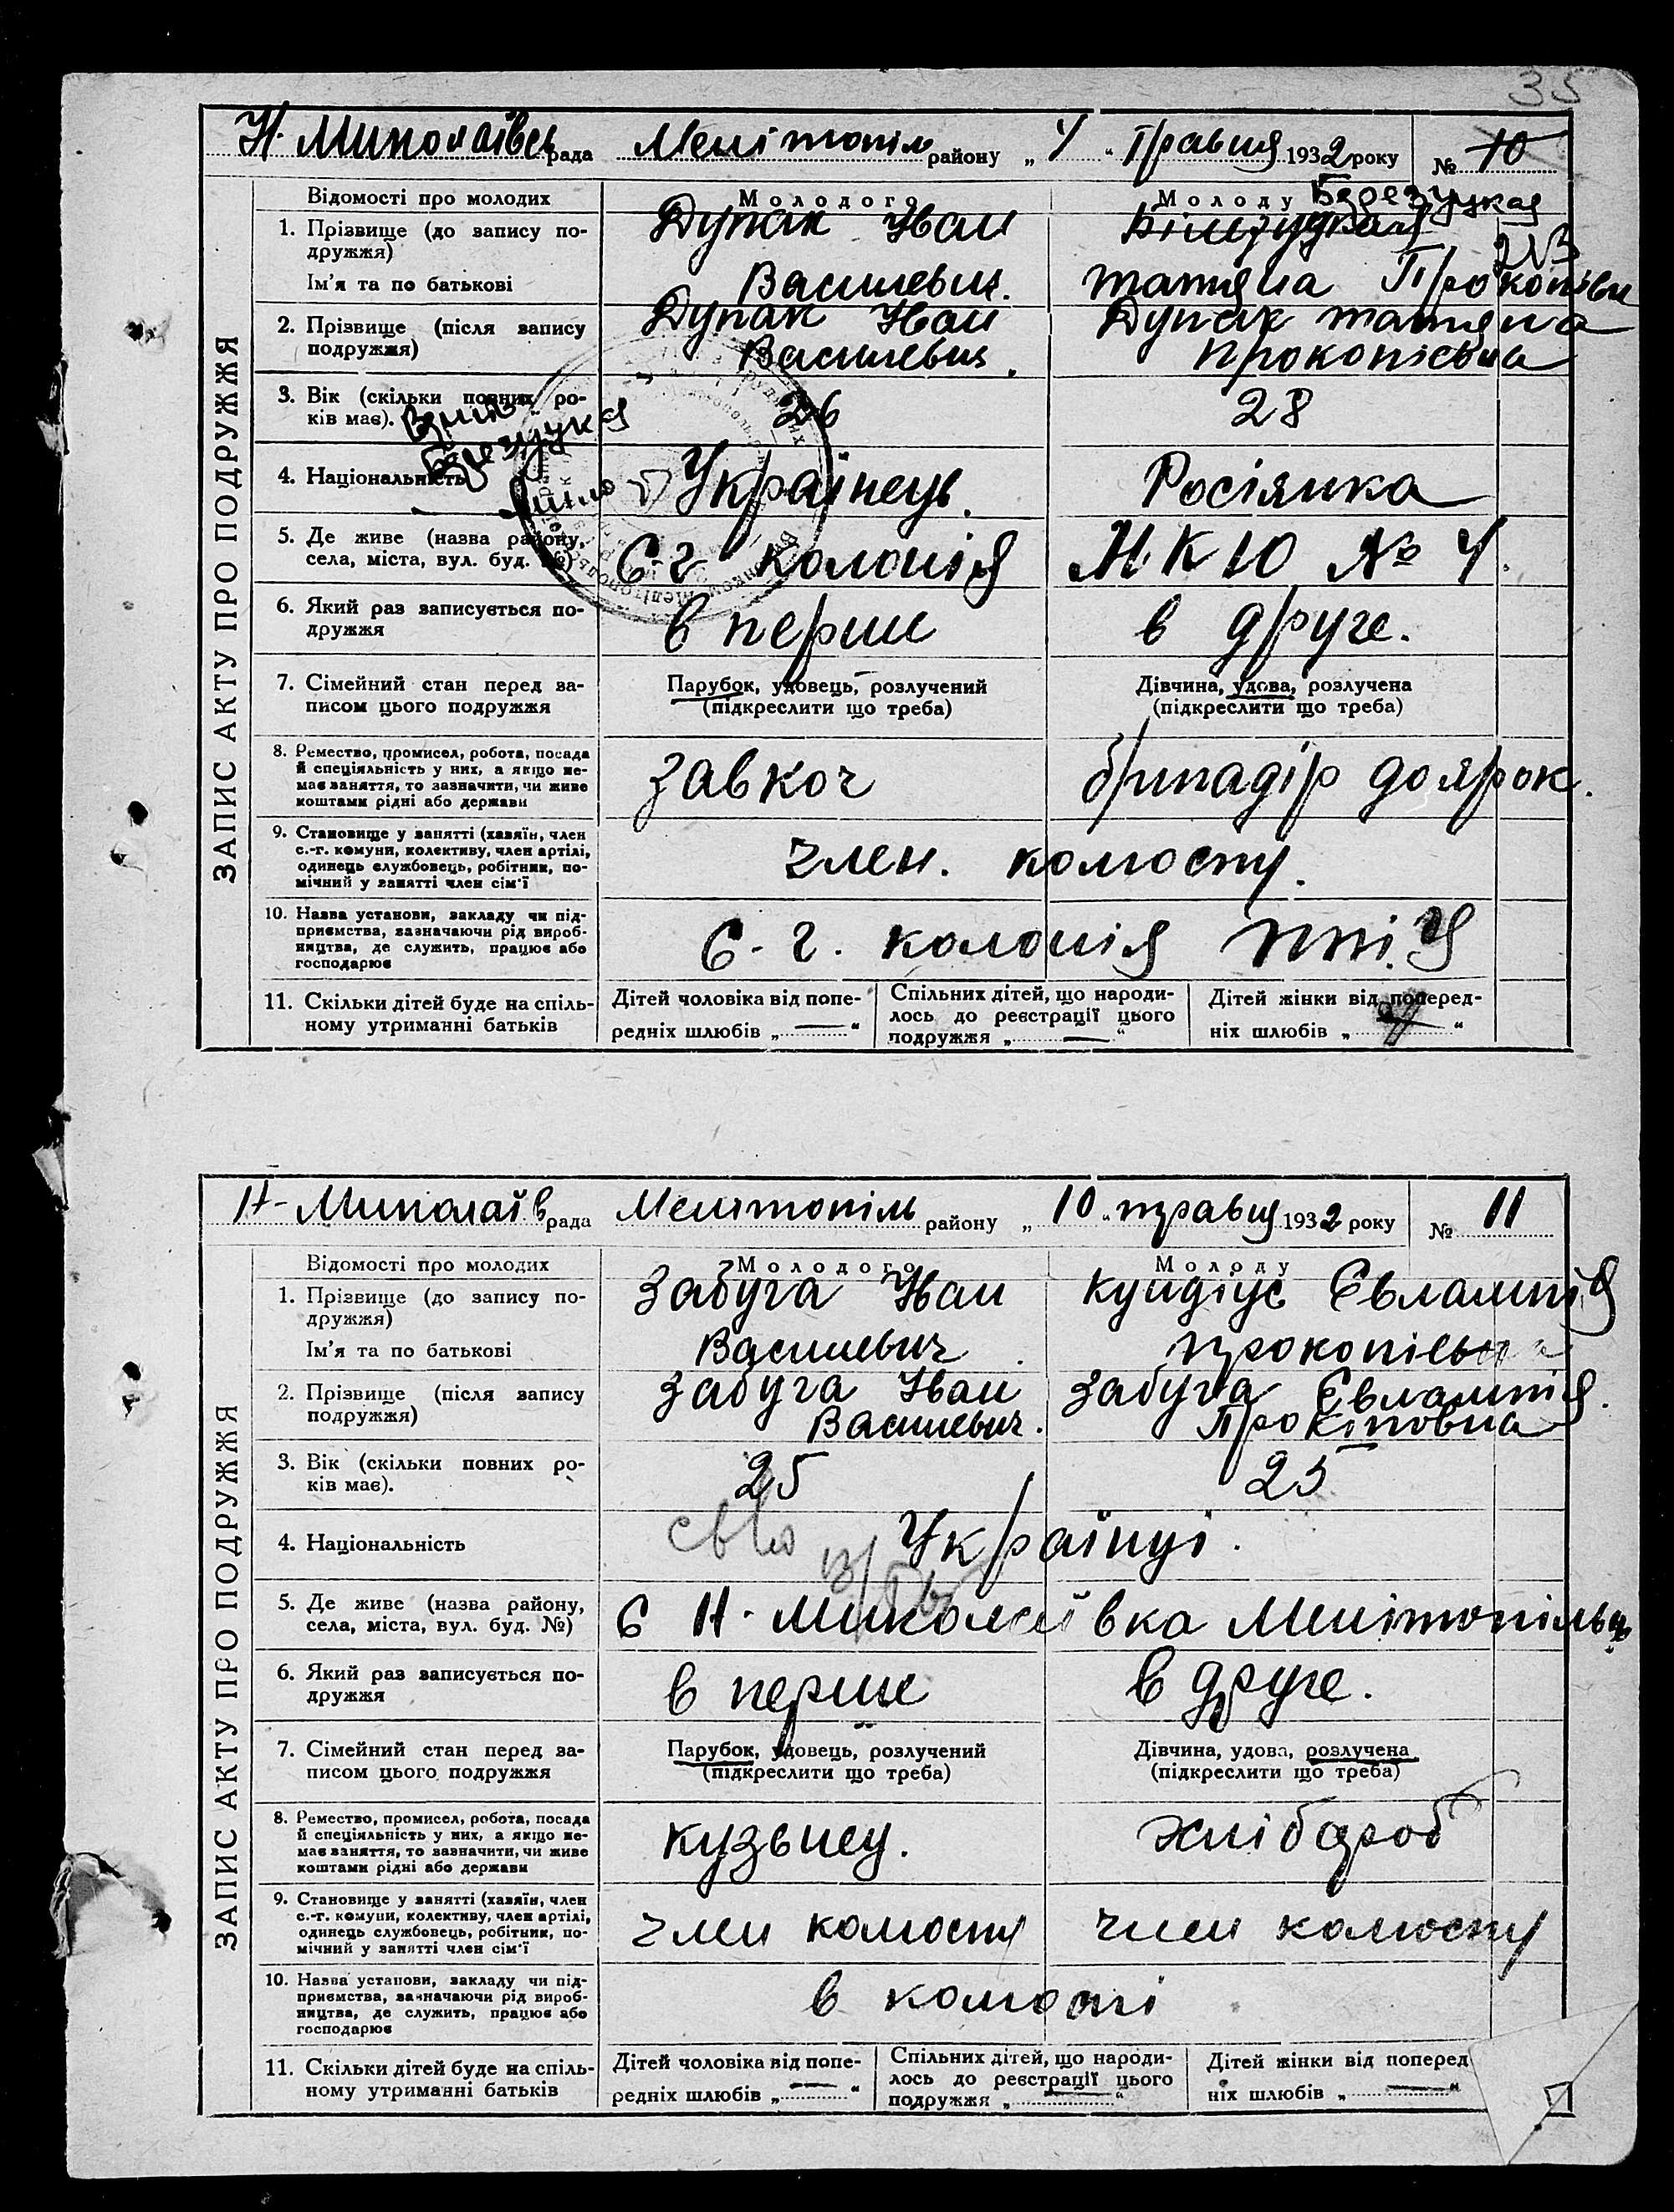 35
Н. Миколаївсь рада Мелітопіль району „4“ Травня 1932 року № 10
ЗАПИС АКТУ ПРО ПОДРУЖЖЯ
Відомості про молодих
Молодого
Молоду Березуцкая
1. Прізвище (до запису по-
дружжя)
Ім'я та по батькові
Дупак Иван
Василевич.
татяна Прокопівн
2. Прізвище (після запису
подружжя)
Дупак Иван
Василевич.
Дупак татяна
Прокопієвна
3. Вік (скільки повних ро-
ків має).
26
28
4. Національність
Українець.
Росіянка
5. Де живе (назва району,
села, міста, вул. буд. №)
С-г колонія
Н.К Ю № 4.
6. Який раз записується по-
дружжя
в перше
в друге.
7. Сімейний стан перед за-
писом цього подружжя
Парубок, удовець, розлучений
(підкреслити що треба)
Дівчина, удова, розлучена
(підкреслити що треба)
8. Ремество, промисел, робота, посада
й спеціяльність у них, а якщо не-
має заняття, то зазначити, чи живе
коштами рідні або держави
завкоч
бригадір доярок.
9. Становище у занятті (хазяїн, член
с.-г. комуни, колективу, член артілі,
одинець службовець, робітник, по-
мічний у занятті член сім'ї
член. колгоспу.
10. Назва установи, закладу чи під-
приємства, зазначаючи рід вироб-
ництва, де служить, працює або
господарює
С-г. колонія
11. Скільки дітей буде на спіль-
ному утриманні батьків
Дітей чоловіка від попе-
редніх шлюбів „—“
Спільних дітей, що народи-
лось до реєстрації цього
подружжя „—“
Дітей жінки від поперед-
ніх шлюбів „ “
Н- Миколаїв рада Мелітопіль району „10“ травня 1932 року № 11
ЗАПИС АКТУ ПРО ПОДРУЖЖЯ
Відомості про молодих
Молодого
Молоду
1. Прізвище (до запису по-
дружжя)
Ім'я та по батькові
Забуга Иван
Василевич
Кундіус Євлампія
прокопієвна
2. Прізвище (після запису
подружжя)
Забуга Иван
Василевич.
Забуга Євлампія.
Прокіповна
3. Вік (скільки повних ро-
ків має).
25
25
4. Національність
Українці.
5. Де живе (назва району,
села, міста, вул. буд. №)
с Н- Миколаївка Мелітопільць
6. Який раз записується по-
дружжя
в перше
в друге.
7. Сімейний стан перед за-
писом цього подружжя
Парубок, удовець, розлучений
(підкреслити що треба)
Дівчина, удова, розлучена
(підкреслити що треба)
8. Ремество, промисел, робота, посада
й спеціяльність у них, а якщо не-
має заняття, то зазначити, чи живе
коштами рідні або держави
кузьнец.
хліборoб
9. Становище у занятті (хазяїн, член
с.-г. комуни, колективу, член артілі,
одинець службовець, робітник, по-
мічний у занятті член сім'ї
член колгоспу
член колгоспу
10. Назва установи, закладу чи під-
приємства, зазначаючи рід вироб-
ництва, де служить, працює або
господарює
в колгоспі
11. Скільки дітей буде на спіль-
ному утриманні батьків
Дітей чоловіка від попе-
редніх шлюбів „—“
Спільних дітей, що народи-
лось до реєстрації цього
подружжя „—“
Дітей жінки від поперед
ніх шлюбів „—“